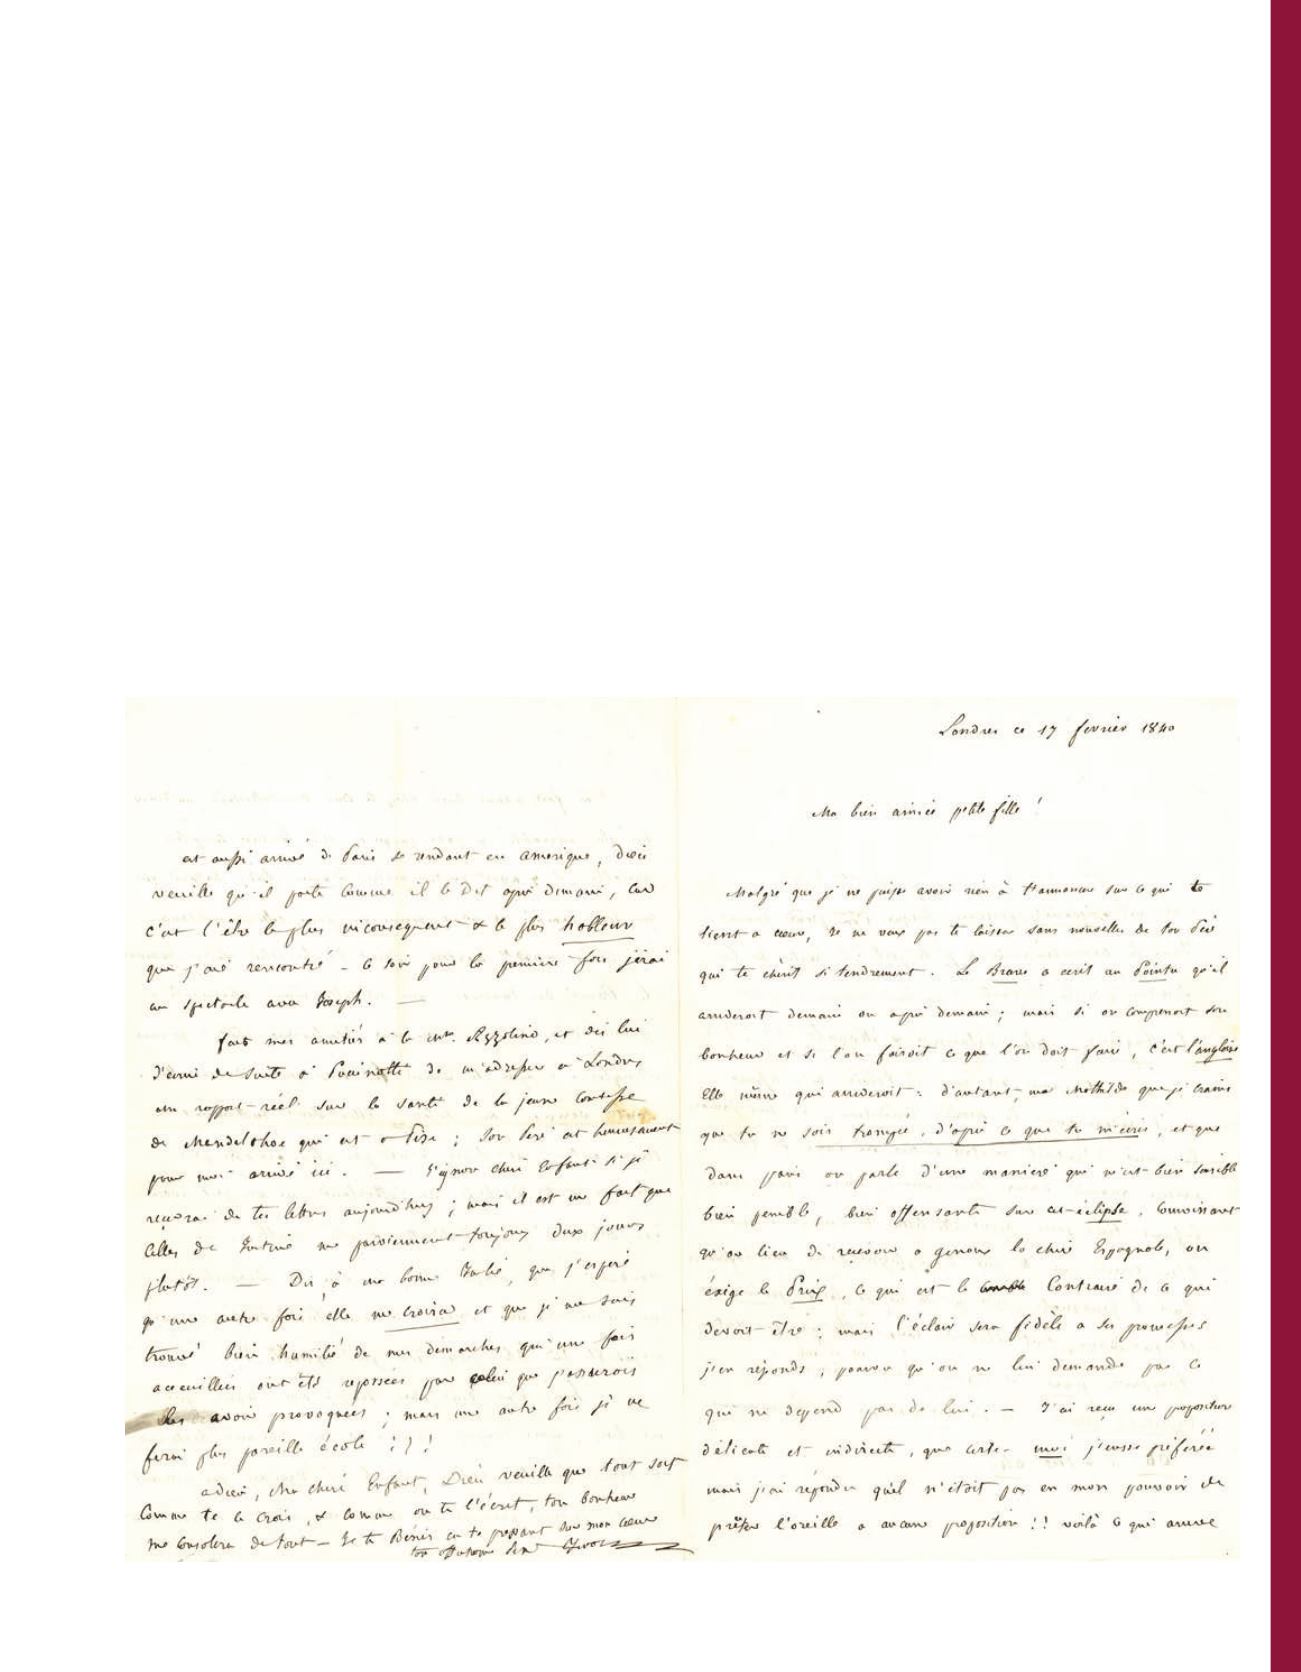 Londres ce 17 fevrier 1840
Ma bien aimée petite fille !
Malgré que je ne puisse avoir rien à t'annoncer sur ce qui te
tient a cœur, je ne veux pas te laisser sans nouvelles de ton Père
qui te chérit si tendrement. Le Brave a ecrit au Pointu qu'il
arriveroit demain ou après demain ; mais si on comprenoit son
bonheur et si l'on faisoit ce que l'on doit faire, c'est l'anglaise
Elle même qui arriveroit : d'autant, ma Mathilde que je crains
que tu ne sois trompée, d'après ce que tu m'écris, et que
dans paris on parle d'une maniere qui m'est bien sensible
bien penible, bien offensante sur cet éclipse,
qu'au lieu de recevoir a genoux la chère Espagnole, on
éxige le Prix, ce qui est le Contraire de ce qui
devoit être ; mais l'éclair sera fidèle a ses promesses
j'en réponds, pourvu qu'on ne lui demande pas ce
qui ne depend pas de lui. — J'ai reçu une proposition
délicate et indirecte, que certes moi j'eusse préférée
mais j'ai répondu qu'il n'étoit pas en mon pouvoir de
prêter l'oreille a aucune proposition !! voilà ce qui arrive
est aussi arrivé de Paris se rendant en amerique, Dieu
veuille qu'il parte comme il le dit après demain, car
c'est l'être le plus inconsequent & le plus hobleur
que j'aie rencontré - ce soir pour la première fois j'irai
au spectacle avec Joseph. —
fais mes amitiés à la Azzolino, et dis lui
d'écrire de suite à Puccinotti de m'adresser à Londres
un rapport réel sur la santé de la jeune Contesse
de Mendelsloe qui est a Pise ; son Père est heureusement
pour moi arrivé ici. — J'ignore chère Enfant si je
recevrai de tes lettres aujourd'huy ; mais il est un fait que
Celles de me parviennent toujours deux jours
plutôt. — Dis à ma bonne que j'espere
qu'une autre fois elle me croira et que je me suis
trouvé bien humilié de mes demarches qui une fois
acceuillies ont été repossées par celui que j'assurois
les avoir provoquées ; mais une autre fois je ne
ferai plus pareille école !!!
adieu, Ma chere Enfant, Dieu veuille que tout soit
Comme tu le crois, & comme on te l'écrit, ton bonheur
me consolera de tout — Je te Bénis en te pressant sur mon cœur
ton